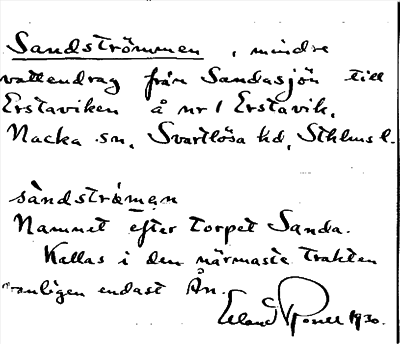 Sandströmmen, mindre
vattendrag från Sandasjön till
Erstaviken å nr 1 Erstavik,
Nacka sn, Svartlösa hd, Sthlms l.
sàndstrǿmen
Namnet efter torpet Sanda.
Kallas i den närmaste trakten
vanligen endast Ån.
Erland 1930.